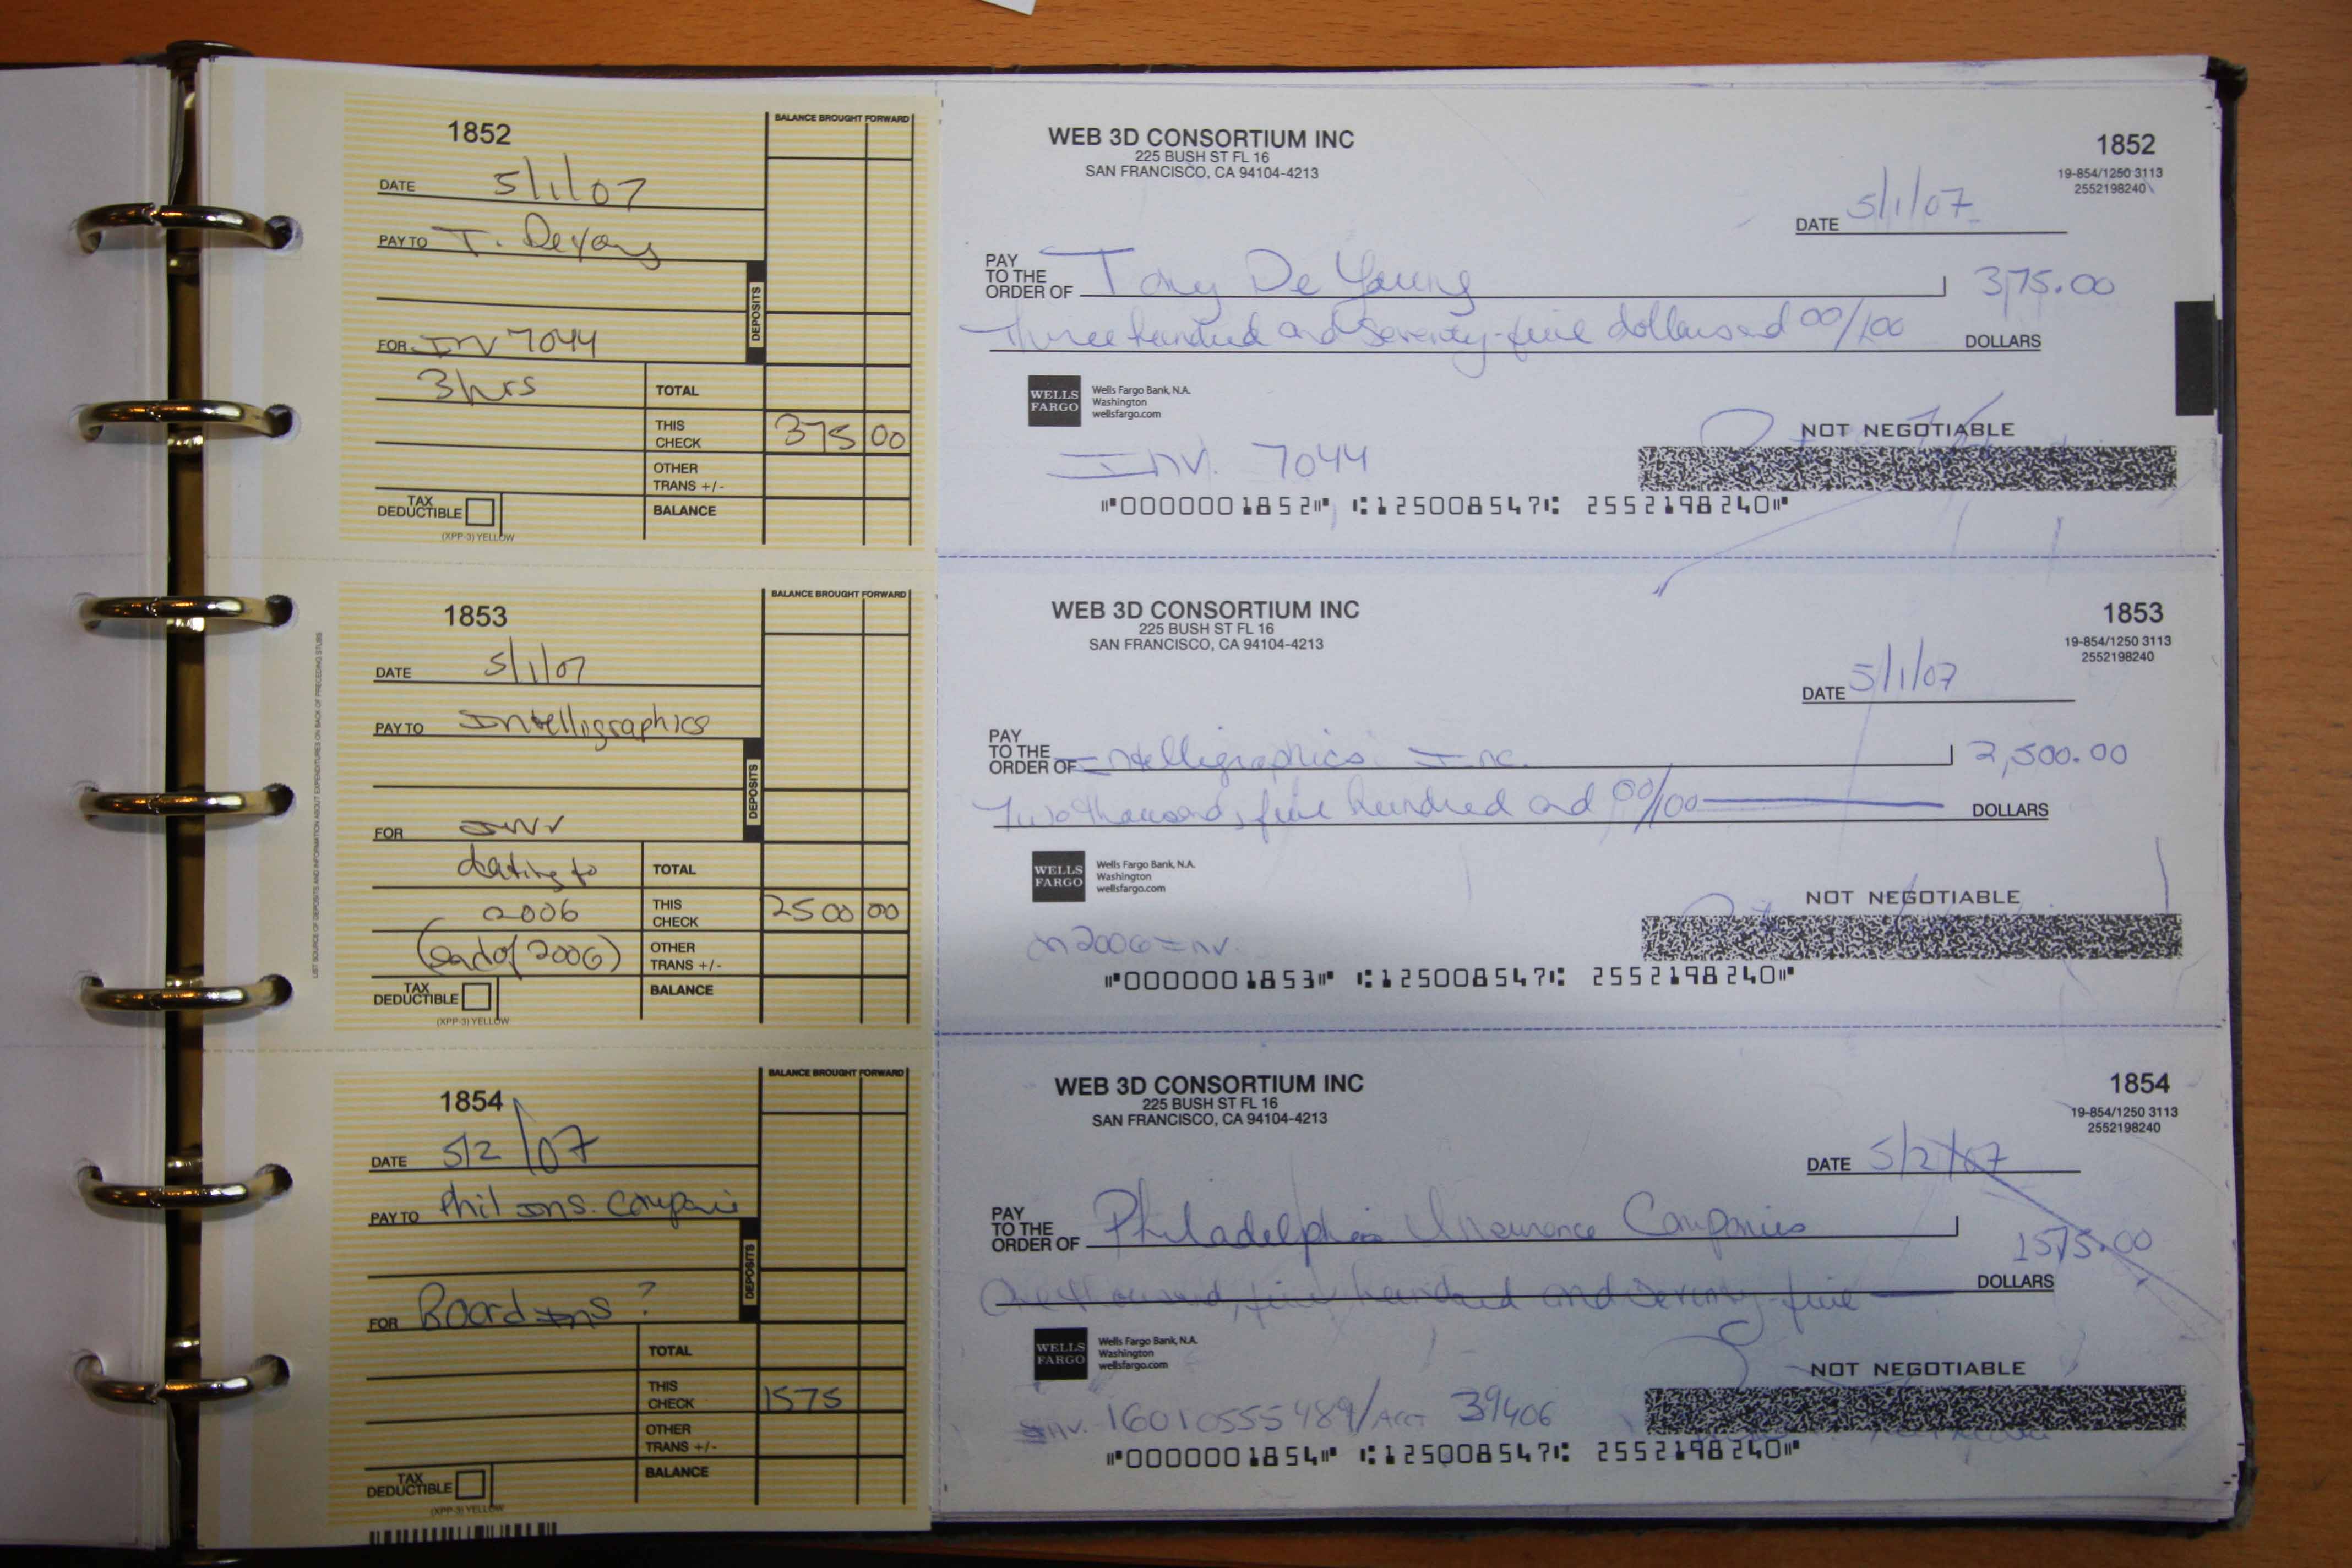 1852
BALANCE BROUGHT FORWARD
DATE 5/1/07
PAY TO T. DeYoung
DEPOSITS
FOR Inv 7044
3 hrs
TOTAL
THIS CHECK 375 00
OTHER TRANS +/-
TAX DEDUCTIBLE
BALANCE
(XPP-3) YELLOW
WEB 3D CONSORTIUM INC
225 BUSH ST FL 16
SAN FRANCISCO, CA 94104-4213
1852
19-854/1250 3113
2552198240
DATE 5/1/07
PAY TO THE ORDER OF Tony De Young 375.00
Three hundred and seventy-five dollars and 00/100 DOLLARS
WELLS FARGO
Wells Fargo Bank, N.A.
Washington
wellsfargo.com
NOT NEGOTIABLE
Inv. 7044
⑈0000001852⑈ ⑆125008547⑆ 2552198240⑈
LIST SOURCE OF DEPOSITS AND INFORMATION ABOUT EXPENDITURES ON BACK OF PRECEDING STUBS
1853
BALANCE BROUGHT FORWARD
DATE 5/1/07
PAY TO Intelligraphics
DEPOSITS
FOR Inv
dating to
2006
(end of 2006)
TOTAL
THIS CHECK 2500 00
OTHER TRANS +/-
TAX DEDUCTIBLE
BALANCE
(XPP-3) YELLOW
WEB 3D CONSORTIUM INC
225 BUSH ST FL 16
SAN FRANCISCO, CA 94104-4213
1853
19-854/1250 3113
2552198240
DATE 5/1/07
PAY TO THE ORDER OF Intelligraphics Inc. 2,500.00
Two thousand, five hundred and 00/100 DOLLARS
WELLS FARGO
Wells Fargo Bank, N.A.
Washington
wellsfargo.com
NOT NEGOTIABLE
2006 Inv.
⑈0000001853⑈ ⑆125008547⑆ 2552198240⑈
1854
BALANCE BROUGHT FORWARD
DATE 5/2/07
PAY TO Phil Ins. Compani
DEPOSITS
FOR Board Ins ?
TOTAL
THIS CHECK 1575
OTHER TRANS +/-
TAX DEDUCTIBLE
BALANCE
(XPP-3) YELLOW
WEB 3D CONSORTIUM INC
225 BUSH ST FL 16
SAN FRANCISCO, CA 94104-4213
1854
19-854/1250 3113
2552198240
DATE 5/2/07
PAY TO THE ORDER OF Philadelphia Insurance Companies 1575.00
One thousand, five hundred and seventy-five DOLLARS
WELLS FARGO
Wells Fargo Bank, N.A.
Washington
wellsfargo.com
NOT NEGOTIABLE
Inv. 16010555489/Acct 39406
⑈0000001854⑈ ⑆125008547⑆ 2552198240⑈